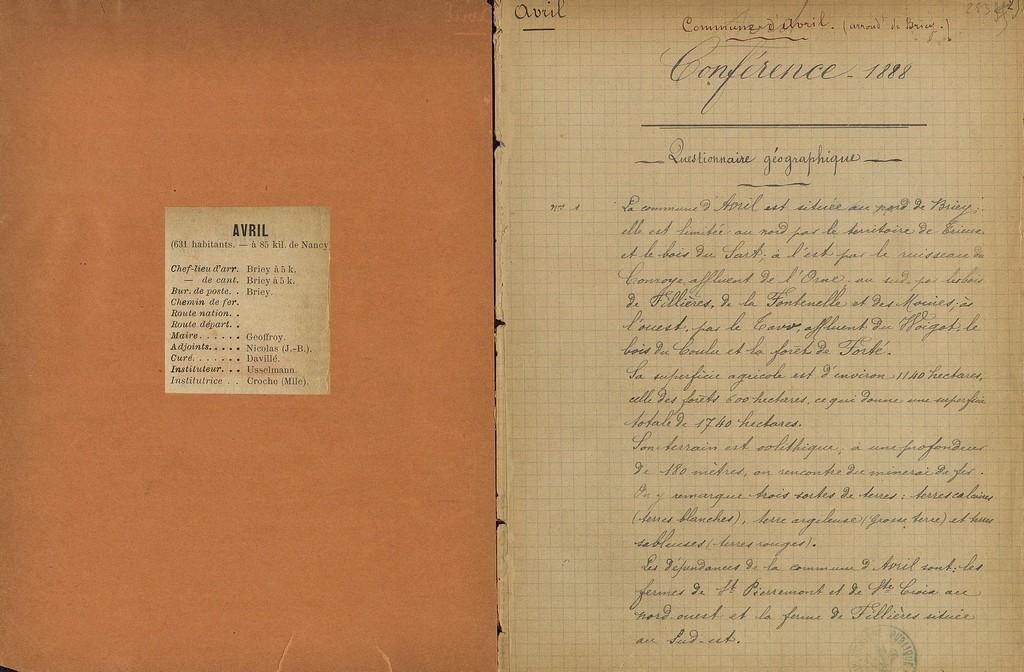 AVRIL
(631 habitants. — à 85 kil. de Nancy
Chef-lieu d'arr. Briey à 5 k.
— de cant. Briey à 5 k.
Bur. de poste. . Briey.
Chemin de fer.
Route nation. .
Route départ. .
Maire . . . . . . Geoffroy.
Adjoints. . . . . Nicolas (J.-B.).
Curé. . . . . . . Davillé.
Instituteur. . . Usselmann.
Institutrice . . Croche (Mlle).
Avril
Commune d'Avril. (arrondt de Briey.)
Conférence - 1888
Questionnaire géographique
No 1
La commune d'Avril est située au nord de Briey;
elle est limitée au nord par le territoire de Trieux
et le bois du Sart; à l'est par le ruisseau du
Conroye, affluent de l'Orne, au sud, par les bois
de Fillières, de la Fontenelle et des Moines; à
l'ouest, par le affluent du Woigot; le
bois du Coulu et la forêt de
Sa superficie agricole est d'environ 1140 hectares,
celle des forêts 600 hectares, ce qui donne une superficie
totale de 1740 hectares.
Son terrain est oolithique; à une profondeur
de 180 mètres, on rencontre du minerai de fer.
On y remarque trois sortes de terres: terres calcaires
(terres blanches), terre argileuse (grosse terre) et terres
sableuses (terres rouges).
Les dépendances de la commune d'Avril sont: les
fermes de St Pierremont et de Ste Croix au
nord-ouest et la ferme de Fillières située
au Sud-est.